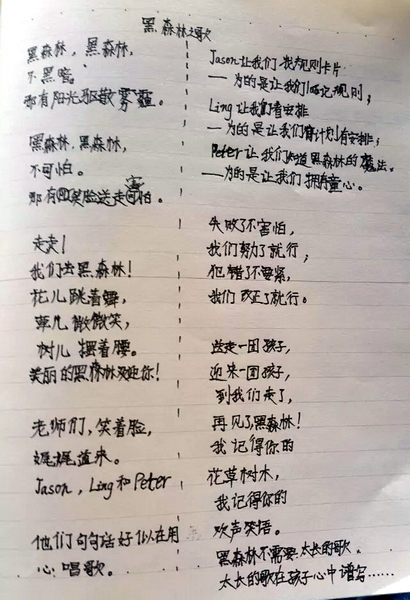 黑森林之歌
黑森林，黑森林，
不黑暗，
那有阳光驱散雾霾。
黑森林，黑森林，
不可怕。
那有笑脸送走害怕。
走走！
我们去黑森林！
花儿跳着舞，
草儿微微笑，
树儿摆着腰。
美丽的黑森林欢迎你！
老师们，笑着脸，
娓娓道来。
Jason，Ling和Peter
他们句句话好似在用
心唱歌。
Jason让我们找规则卡片
——为的是让我们临记规则；
Ling让我们看安排
——为的是让我们有计划有安排；
Peter让我们知道黑森林的魔法。
——为的是让我们拥有童心。
失败了不害怕，
我们努力了就行；
犯错了不要紧，
我们改正了就行。
送走一团孩子，
迎来一团孩子，
到我们走了，
再见了，黑森林！
我记得你的
花草树木，
我记得你的
欢声笑语。
黑森林不需要太长的歌，
太长的歌在孩子心中谱写……